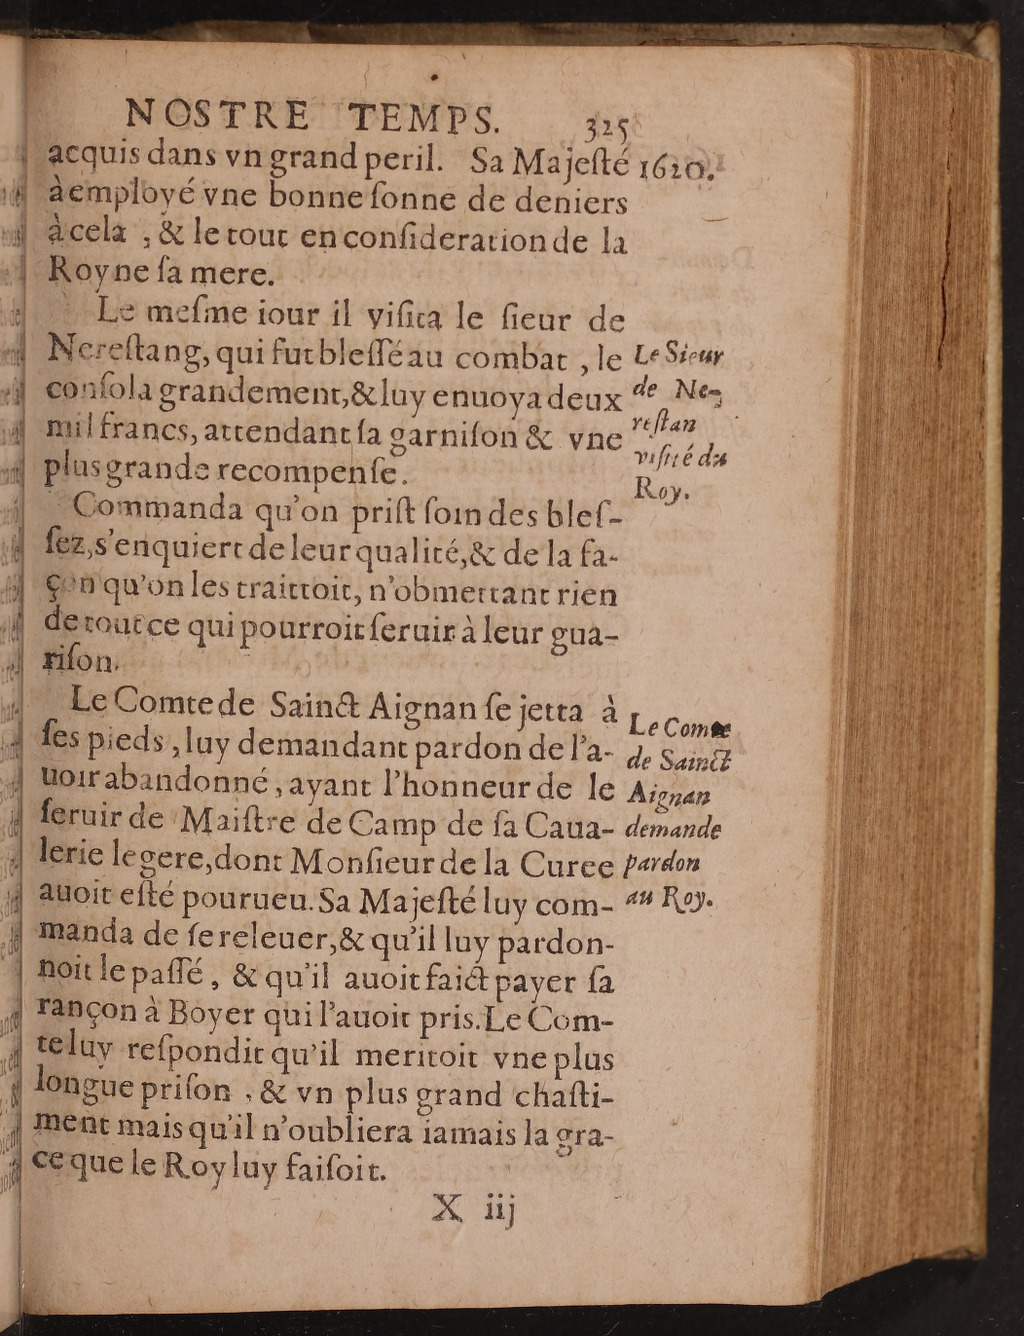 NOSTRE TEMPS. 325
acquis dans vn grand peril. Sa Majeſté 1620.
à employé vne bonne ſonne de deniers
à cela , & le tout en conſideration de la
Royne ſa mere.
Le meſme iour il viſita le ſieur de
Nereſtang, qui fut bleſſé au combat , le
conſola grandement, & luy enuoya deux
mil francs, attendant ſa garniſon & vne
plus grande recompenſe.
Le Sieur
de Ne-
reſtan
viſité du
Roy.
Commanda qu'on priſt ſoin des bleſ-
ſez, s'enquiert de leur qualité, & de la fa-
çon qu'on les traittoit, n'obmettant rien
de tout ce qui pourroit ſeruir à leur gua-
riſon.
Le Comte de Sainct Aignan ſe jetta à
ſes pieds , luy demandant pardon de l'a-
uoir abandonné , ayant l'honneur de le
ſeruir de Maiſtre de Camp de ſa Caua-
lerie legere, dont Monſieur de la Curee
auoit eſté pourueu. Sa Majeſté luy com-
manda de ſe releuer, & qu'il luy pardon-
noit le paſſé , & qu'il auoit faict payer ſa
rançon à Boyer qui l'auoit pris. Le Com-
te luy reſpondit qu'il meritoit vne plus
longue priſon , & vn plus grand chaſti-
ment mais qu'il n'oubliera iamais la gra-
ce que le Roy luy faiſoit.
Le Comte
de Sainct
Aignan
demande
pardon
au Roy.
X iij